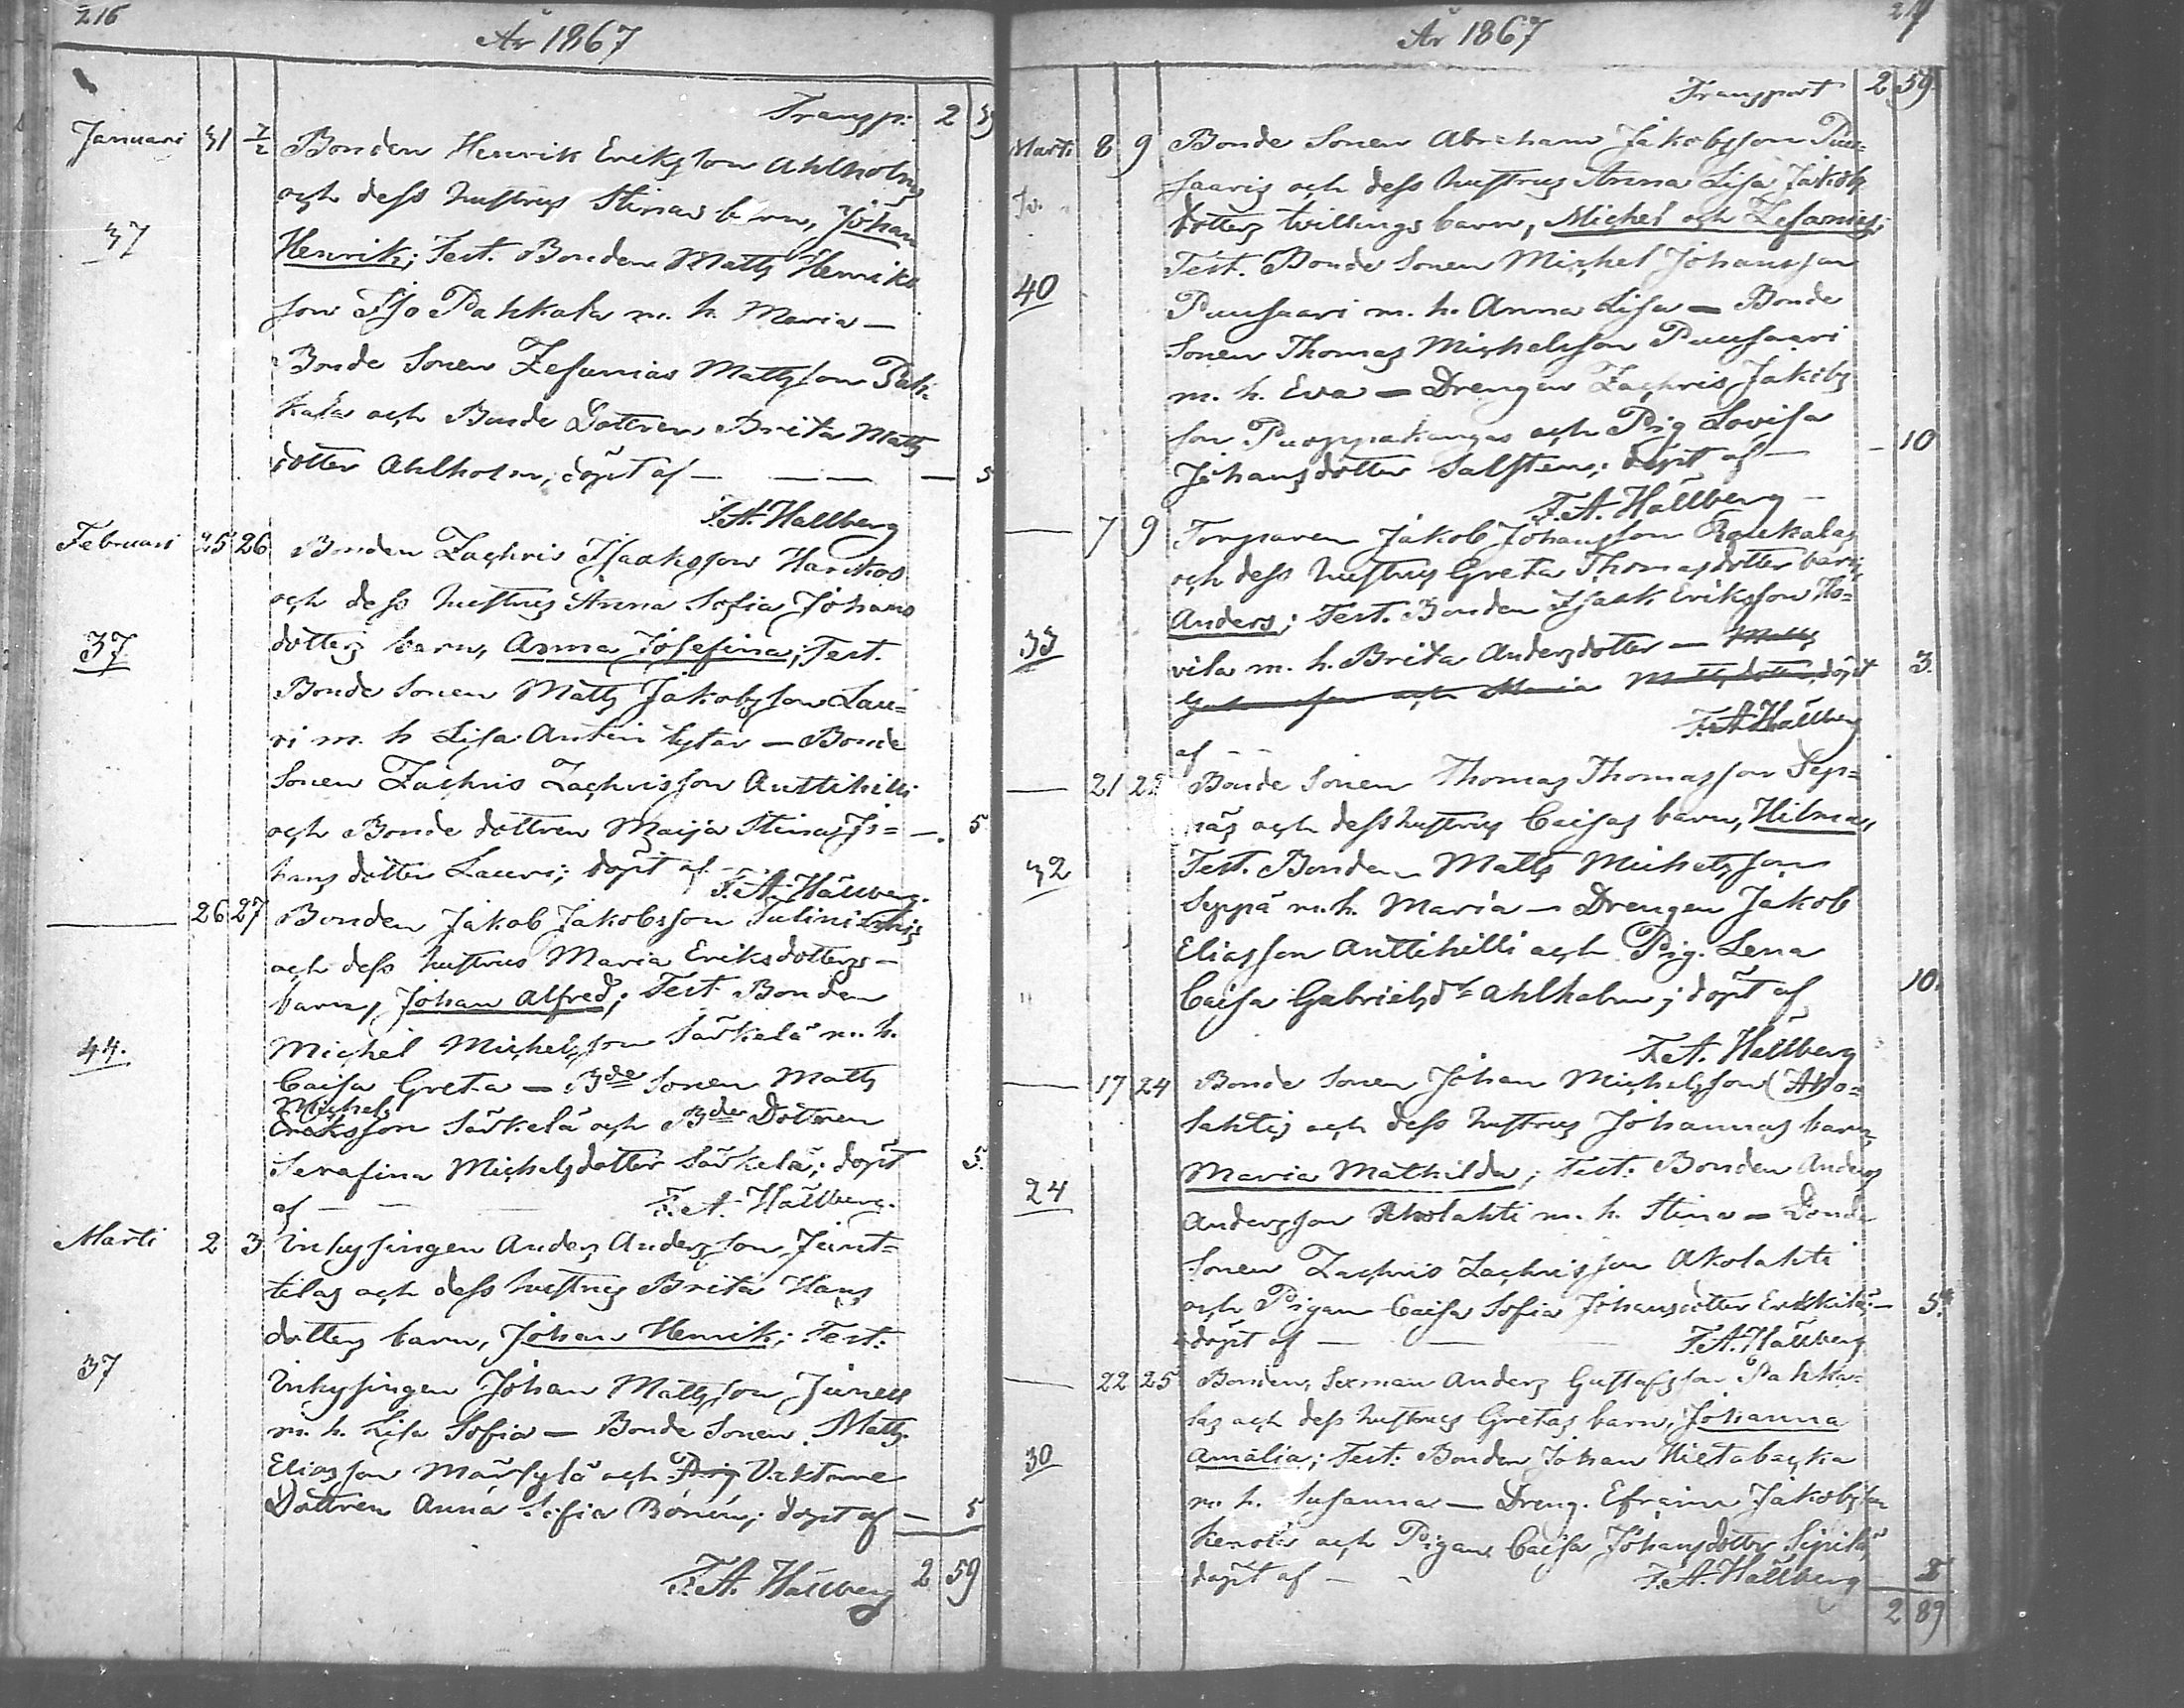 216
År 1867
Transp: 2 39
Januari 31 7/2 Bonden Henrik Eriksson Ahlholms
och dess hustrus Stinas barn, Johan
37
Henrik; Test. Bonden Matts Henriks
son Iso Pahkala m. h. Maria —
Bonde Sonen Zefanias Mattsson Pah-
kala och Bonde Dottren Brita Matts
dotter Ahlholm; döpt af — — — 5
F. A. Hällberg
Februari 25 26 Bonden Zachris Isaksson Harikos
och dess hustrus Anna Sofia Johans
37
dotters barn, Anna Josefina; Test.
Bonde Sonen Matts Jakobsson Lau=
ri m. h Lisa Antin tytär — Bonde
Sonen Zachris Zachrisson Anttihilli
och Bonde dottren Maija Stina Jo= — 5
hans dotter Lauri; döpt af
F. A. Hällberg.
— 26 27 Bonden Jakob Jakobsson
och dess hustrus Maria Eriksdotters —
barn, Johan Alfred; Test. Bonden
44.
Michel Michelsson Särkelä m. h.
Caisa Greta — Bde Sonen Matts
Michels
Eriksson Särkelä och Bde Dottren
Serafina Michelsdotter Särkelä; döpt 5.
af — — F. A. Hällberg.
Marti 2 3 Inhysingen Anders Andersson Junt=
tilas och dess hustrus Brita Hans
dotters barn, Johan Henrik; Test:
37
Inhysingen Johan Mattsson Junell
m. h. Lisa Sofia — Bonde Sonen Matts
Eliasson Märsylä och Pig Vaktmne
Dottren Anna Sofia Borén; döpt af — 5
F. A. Hällberg 2 59
217
År 1867
Transport 2 59
Marti 8 9 Bonde Sonen Abraham Jakobsson Puu-
saaris och dess hustrus Anna Lisa Jakobs
dotters tvillings barn, Michel och Zefanias;
Test. Bonde Sonen Michel Johansson
40
Puusaari m. h. Anna Lisa — Bonde
Sonen Thomas Michelsson Puusaari
m. h. Eva — Drengen Zachris Jakobs
son Puoppakangas och Pig Lovisa — 10
Johansdotter Salsten; döpt af —
F. A. Hällberg —
— 7 9 Torparen Jakob Johansson Raukalas
och dess hustrus Greta Thomasdotters barn,
Anders; Test. Bonden Isak Eriksson Ho=
33
vila m. h. Brita Andersdotter — Matts
och Maria Mattsdotter, döpt 3.
F. A. Hällberg
af — —
— 21 22 Bonde Sonen Thomas Thomasson Sep=
päs och dess hustrus Caisas barn, Hilma,
32
Test. Bonden Matts Michelsson
Seppä m. h. Maria — Drengen Jakob
Eliasson Anttihilli och Pig. Lena
Caisa Gabrielsdr Ahlholm; döpt af 10.
F. A. Hällberg
— 17 24 Bonde Sonen Johan Michelsson Aho=
lahtis och dess hustrus Johannas barn,
Maria Mathilda; Test: Bonden Anders
24
Andersson Aholahti m. h. Stina — Bonde
Sonen Zachris Zachrisson Aholahti
och Pigan Caisa Sofia Johansdotter Erkkilä; — 5.
döpt af — — F. A. Hällberg
— 22 25 Bonden, Sexman Anders Gustafsson Pahka=
las och dess hustrus Gretas barn, Johanna
30
Amalia; Test: Bonden Johan Hietabacka
m. h. Susanna — Dreng. Efraim Jakobsson
Kenola och Pigan Caisa Johansdotter Sipilä,
döpt af — — F. A. Hällberg
2 89